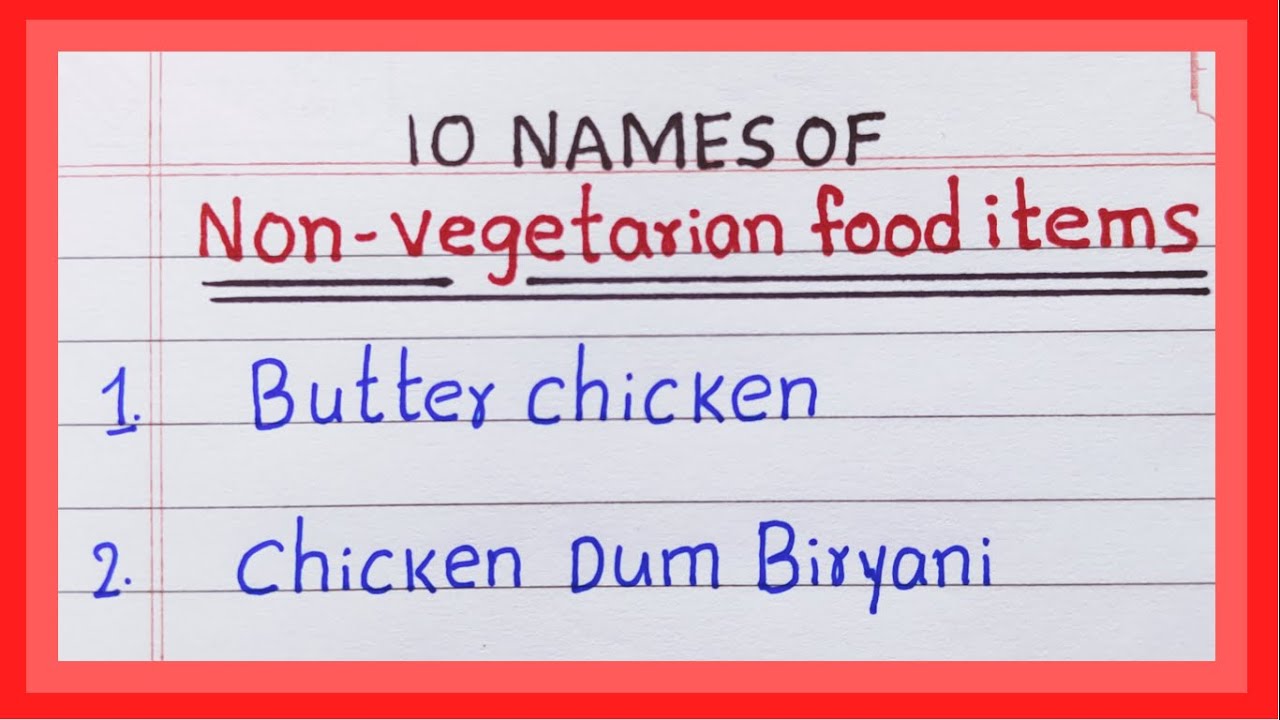 10 NAMES OF
Non-vegetarian food items
1. Butter chicken
2. Chicken Dum Biryani